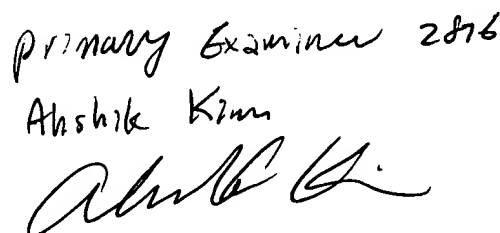 Primary Examiner 2876
Ahshik Kim